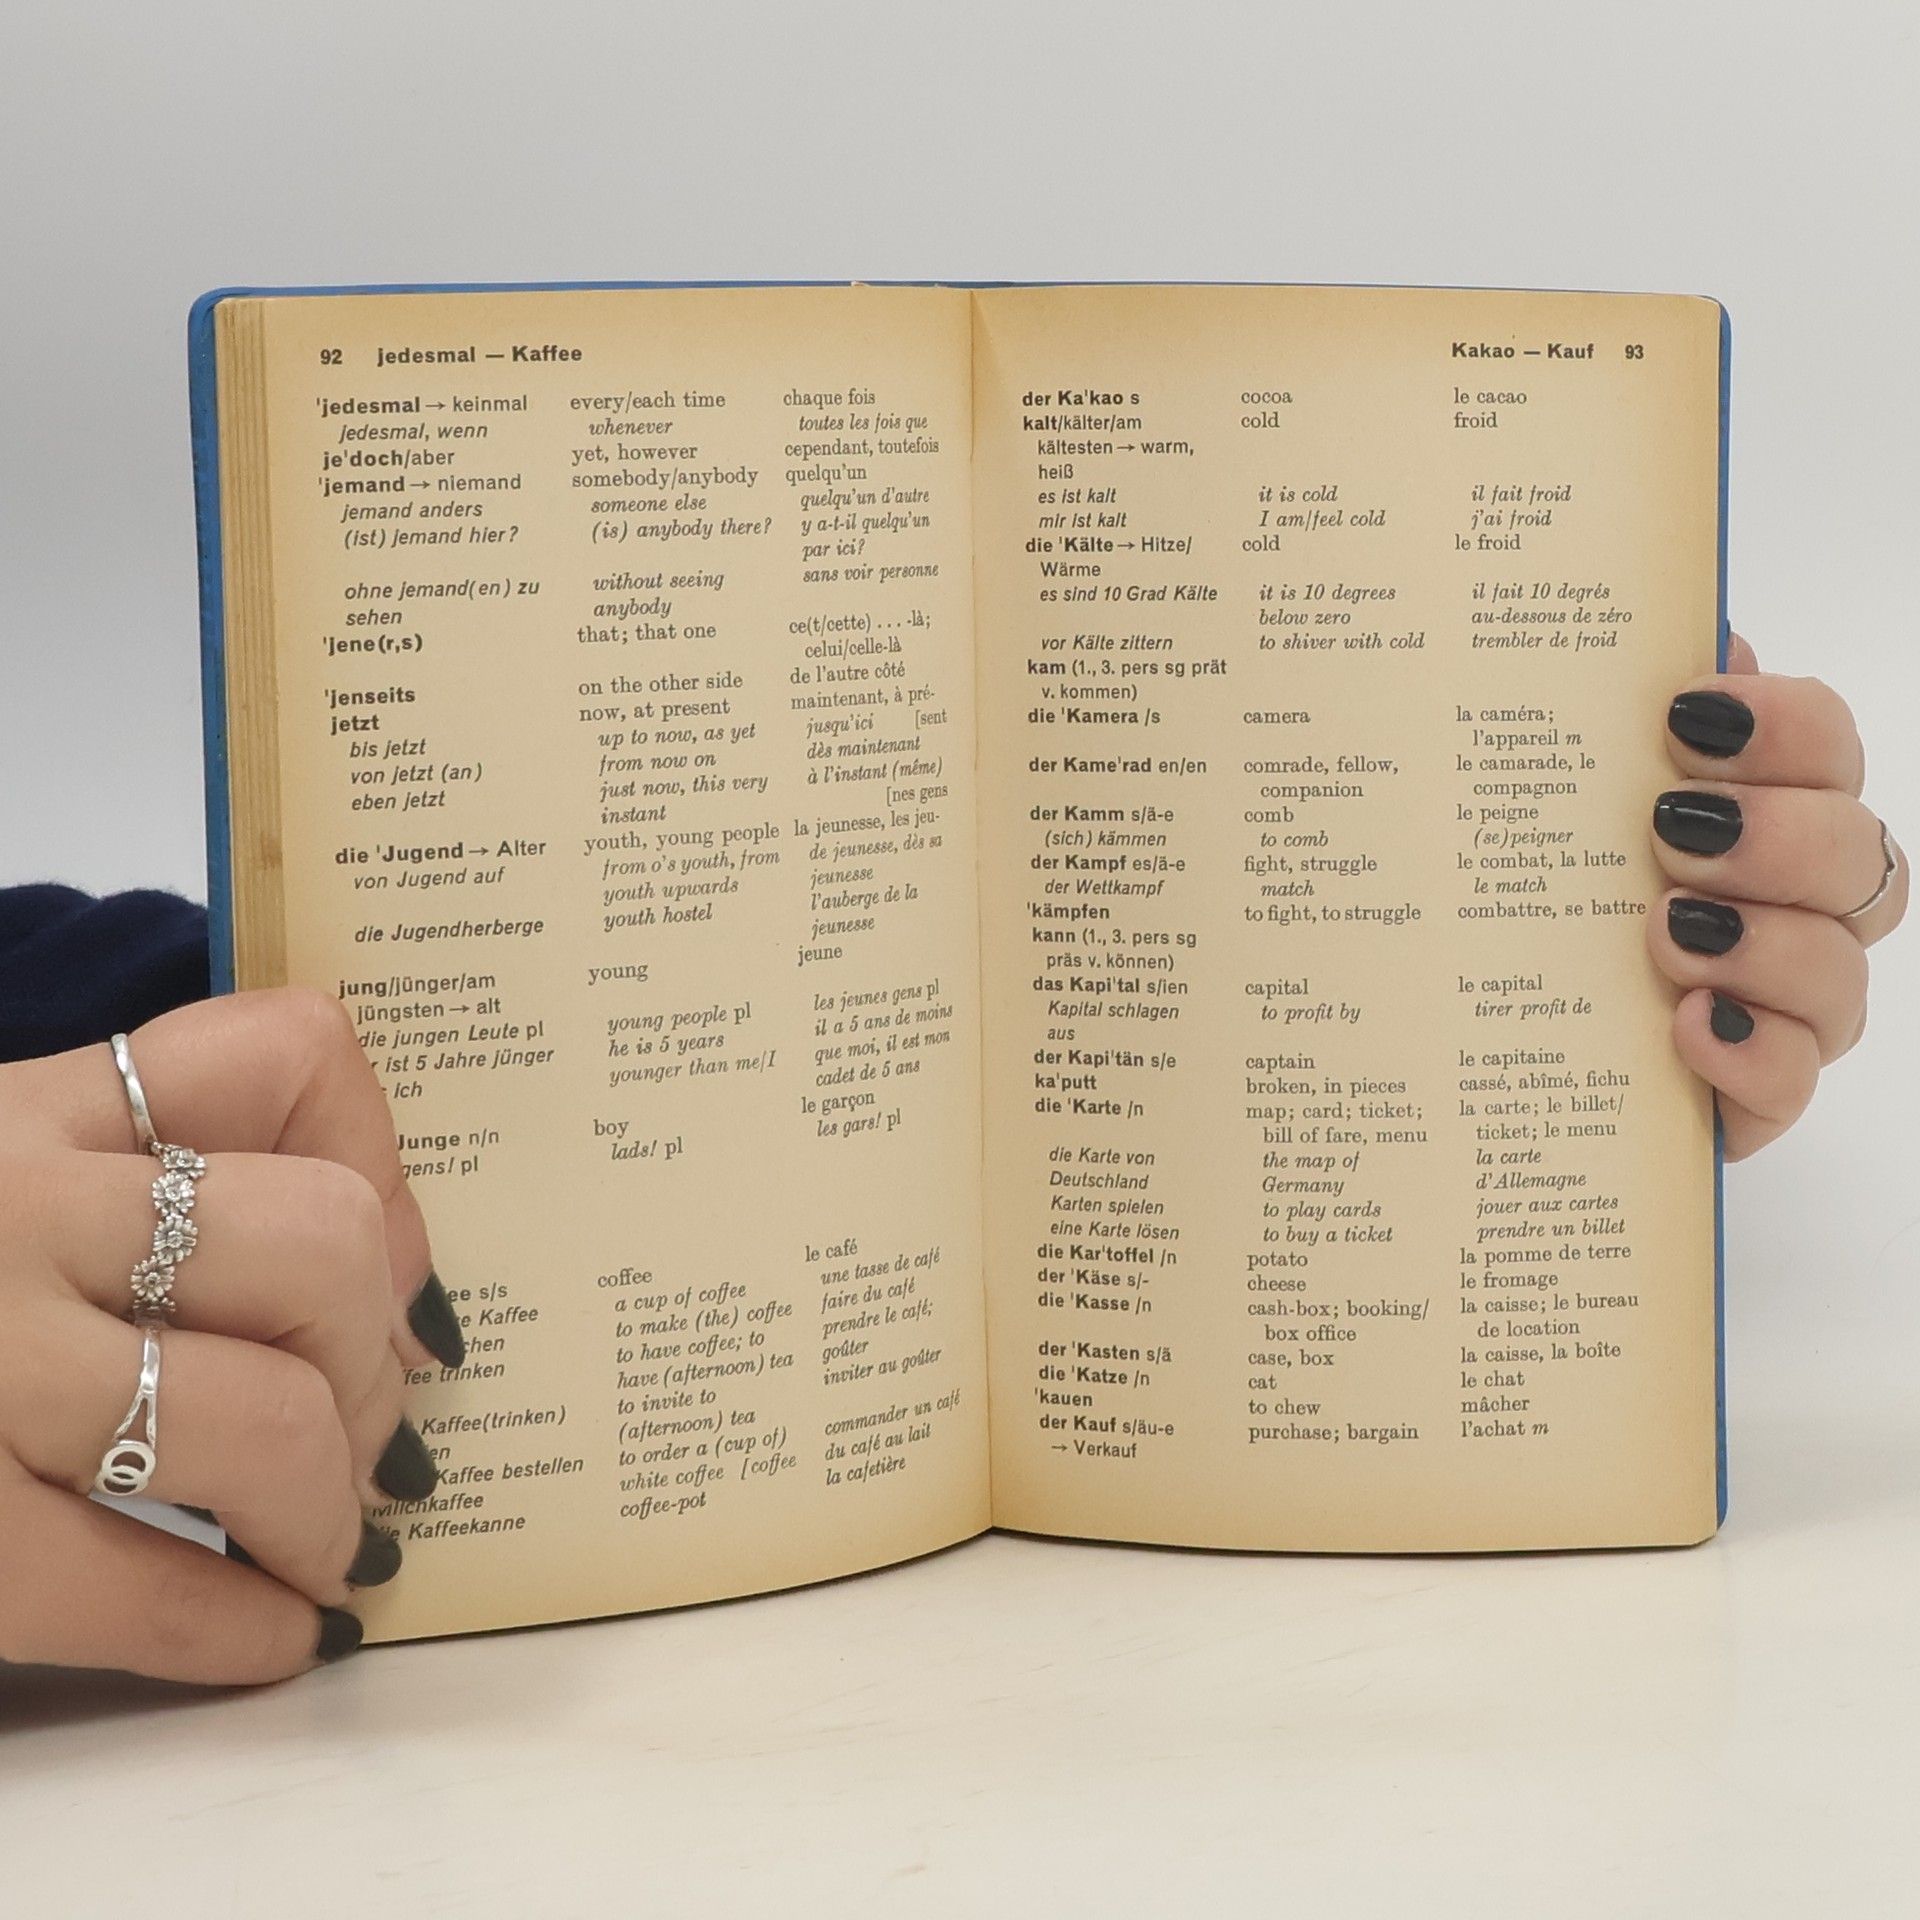 92 jedesmal — Kaffee
'jedesmal → keinmal every/each time chaque fois
jedesmal, wenn whenever toutes les fois que
je'doch/aber yet, however cependant, toutefois
'jemand → niemand somebody/anybody quelqu'un
jemand anders someone else quelqu'un d'autre
(ist) jemand hier? (is) anybody there? y a-t-il quelqu'un
par ici?
ohne jemand(en) zu without seeing sans voir personne
sehen anybody
'jene(r,s) that; that one ce(t/cette) ....-là;
celui/celle-là
'jenseits on the other side de l'autre côté
jetzt now, at present maintenant, à pré-
bis jetzt up to now, as yet jusqu'ici [sent
von jetzt (an) from now on dès maintenant
eben jetzt just now, this very à l'instant (même)
instant [nes gens
die 'Jugend → Alter youth, young people la jeunesse, les jeu-
von Jugend auf from o's youth, from de jeunesse, dès sa
youth upwards jeunesse
die Jugendherberge youth hostel l'auberge de la
jeunesse
jung/jünger/am young jeune
jüngsten → alt
die jungen Leute pl young people pl les jeunes gens pl
r ist 5 Jahre jünger he is 5 years il a 5 ans de moins
s ich younger than me/I que moi, il est mon
cadet de 5 ans
Junge n/n boy le garçon
gens! pl lads! pl les gars! pl
ee s/s coffee le café
e Kaffee a cup of coffee une tasse de café
chen to make (the) coffee faire du café
fee trinken to have coffee; to prendre le café;
have (afternoon) tea goûter
Kaffee(trinken) to invite to inviter au goûter
en (afternoon) tea
Kaffee bestellen to order a (cup of) commander un café
Milchkaffee white coffee [coffee du café au lait
die Kaffeekanne coffee-pot la cafetière
Kakao — Kauf 93
der Ka'kao s cocoa le cacao
kalt/kälter/am cold froid
kältesten → warm,
heiß
es ist kalt it is cold il fait froid
mir ist kalt I am/feel cold j'ai froid
die 'Kälte → Hitze/ cold le froid
Wärme
es sind 10 Grad Kälte it is 10 degrees il fait 10 degrés
below zero au-dessous de zéro
vor Kälte zittern to shiver with cold trembler de froid
kam (1., 3. pers sg prät
v. kommen)
die 'Kamera /s camera la caméra;
l'appareil m
der Kame'rad en/en comrade, fellow, le camarade, le
companion compagnon
der Kamm s/ä-e comb le peigne
(sich) kämmen to comb (se)peigner
der Kampf es/ä-e fight, struggle le combat, la lutte
der Wettkampf match le match
'kämpfen to fight, to struggle combattre, se battre
kann (1., 3. pers sg
präs v. können)
das Kapi'tal s/ien capital le capital
Kapital schlagen to profit by tirer profit de
aus
der Kapi'tän s/e captain le capitaine
ka'putt broken, in pieces cassé, abîmé, fichu
die 'Karte /n map; card; ticket; la carte; le billet/
bill of fare, menu ticket; le menu
die Karte von the map of la carte
Deutschland Germany d'Allemagne
Karten spielen to play cards jouer aux cartes
eine Karte lösen to buy a ticket prendre un billet
die Kar'toffel /n potato la pomme de terre
der 'Käse s/- cheese le fromage
die 'Kasse /n cash-box; booking/ la caisse; le bureau
box office de location
der 'Kasten s/ä case, box la caisse, la boîte
die 'Katze /n cat le chat
'kauen to chew mâcher
der Kauf s/äu-e purchase; bargain l'achat m
→ Verkauf